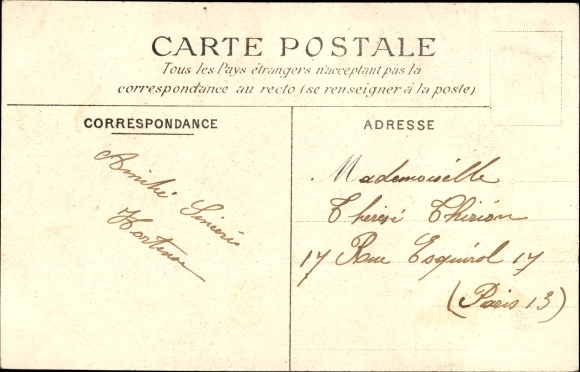 CARTE POSTALE
Tous les Pays étrangers n'acceptent pas la
correspondance au recto (se renseigner à la poste)
CORRESPONDANCE
Amitié Sincère
Hortense
ADRESSE
Mademoiselle
Thérèse Thirion
17 Rue Esquirol 17
(Paris 13)